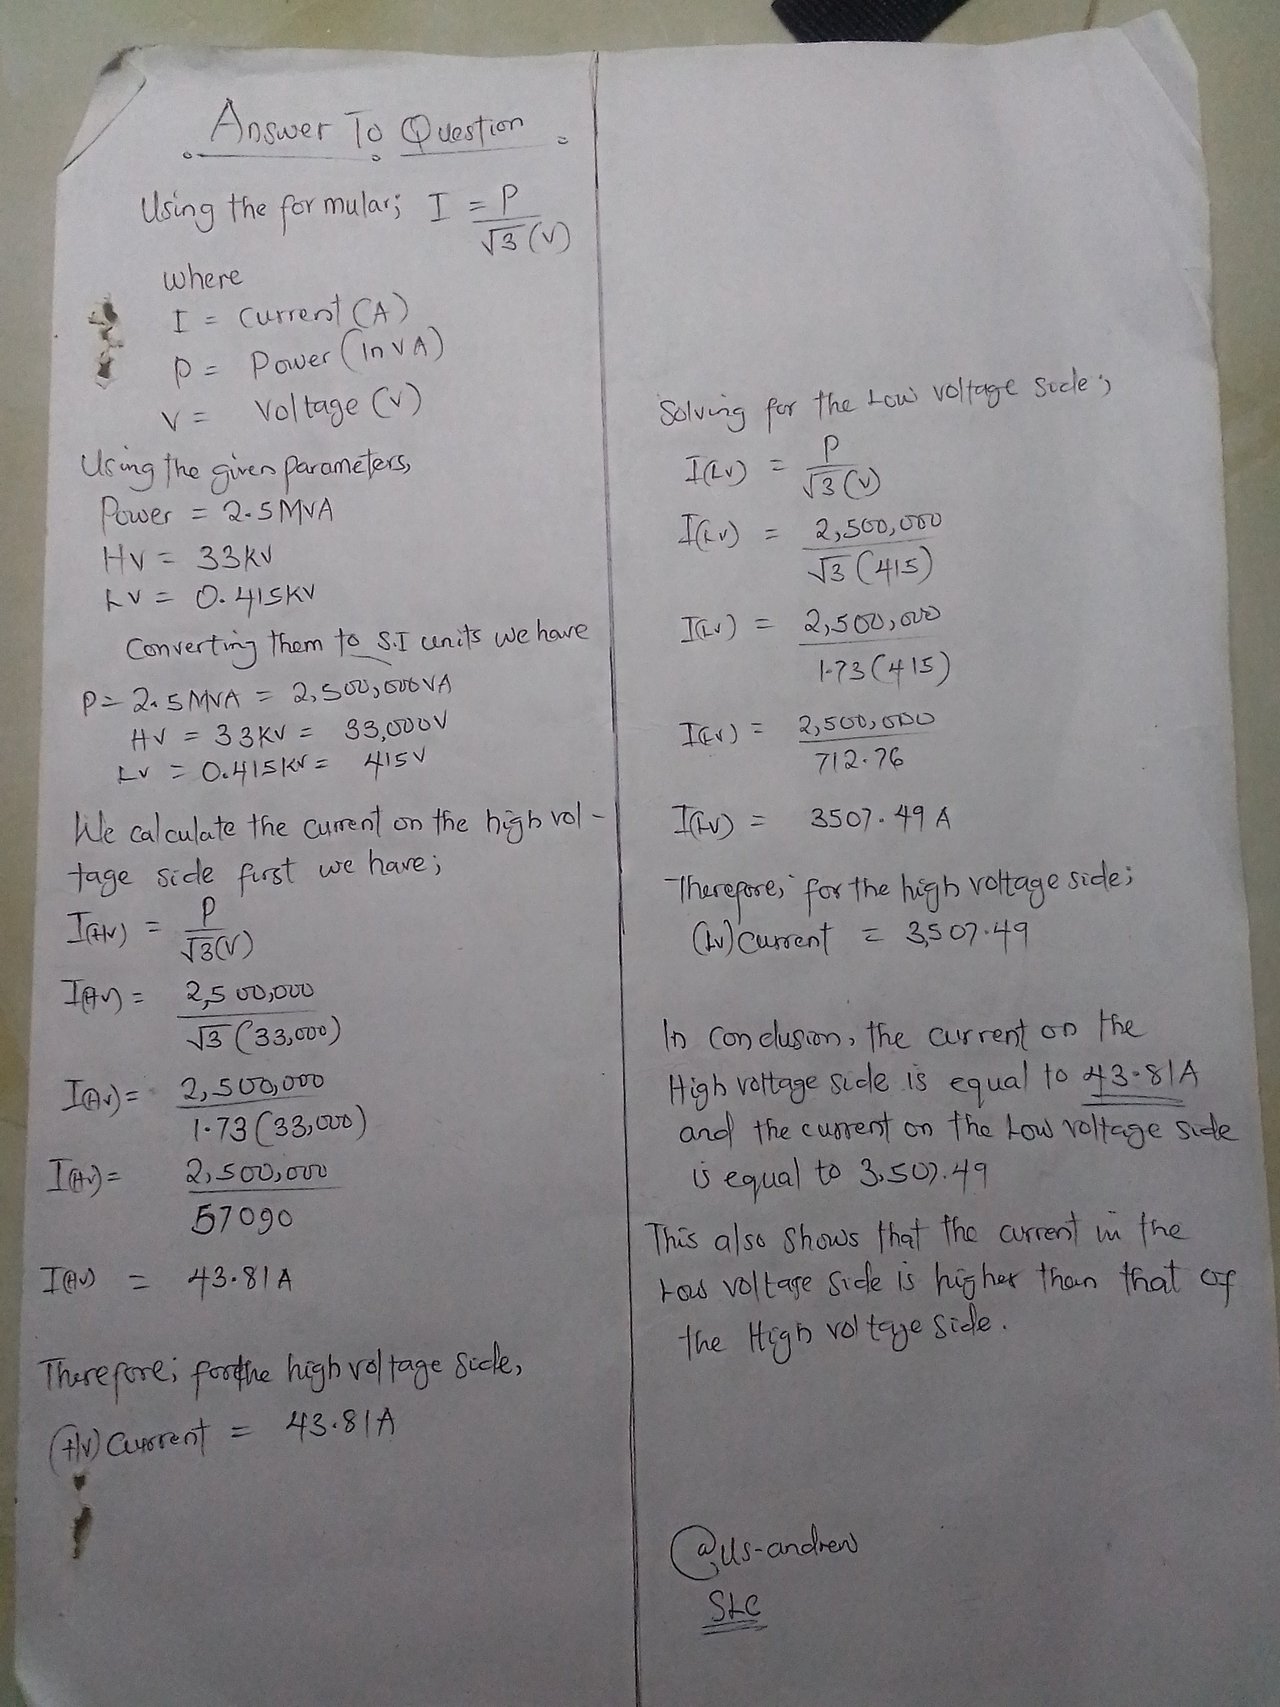 Answer To Question
Using the formular; I = P
√3 (V)
where
I = Current (A)
P = Power (In VA)
V = Voltage (V)
Using the given parameters,
Power = 2.5MVA
HV = 33KV
LV = 0.415KV
Converting them to S.I units we have
P = 2.5MVA = 2,500,000VA
HV = 33KV = 33,000V
LV = 0.415KV = 415V
We calculate the current on the high vol-
tage side first we have;
I(HV) = P
√3(V)
I(HV) = 2,500,000
√3 (33,000)
I(HV) = 2,500,000
1.73 (33,000)
I(HV) = 2,500,000
57090
I(HV) = 43.81A
Therefore; for the high voltage side,
(HV) Current = 43.81A
Solving for the Low voltage side;
I(LV) = P
√3 (V)
I(LV) = 2,500,000
√3 (415)
I(LV) = 2,500,000
1.73 (415)
I(LV) = 2,500,000
712.76
I(LV) = 3507.49 A
Therefore, for the high voltage side;
(LV) Current = 3,507.49
In Conclusion, the current on the
High voltage side is equal to 43.81A
and the current on the Low voltage side
is equal to 3,507.49
This also shows that the current in the
Low voltage side is higher than that of
the High voltage side.
@us-andrew
SLC